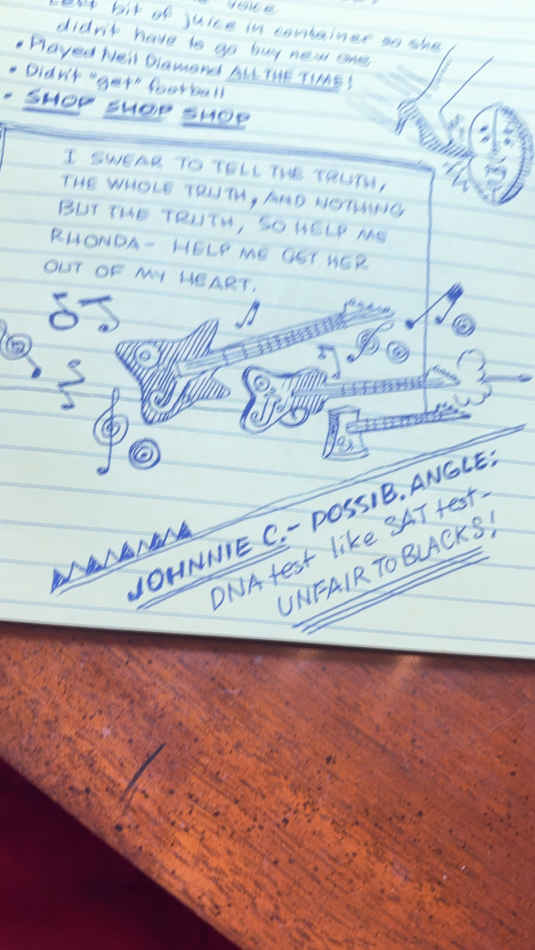 bit of juice in container so she
didn't have to go buy new one
• Played Neil Diamond ALL THE TIME!
• Didn't "get" football
• SHOP SHOP SHOP
I SWEAR TO TELL THE TRUTH,
THE WHOLE TRUTH, AND NOTHING
BUT THE TRUTH, SO HELP ME
RHONDA- HELP ME GET HER
OUT OF MY HEART.
JOHNNIE C.- POSSIB. ANGLE:
DNA test like SAT test-
UNFAIR TO BLACKS!